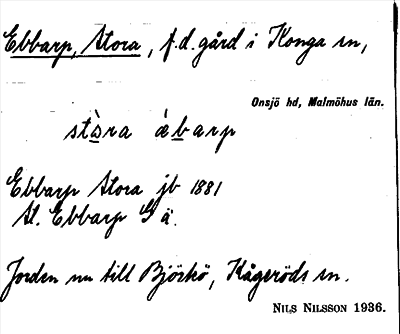 Ebbarp, Stora, f.d. gård i Konga sn,
Onsjö hd, Malmöhus län.
stòra èbarp
Ebbarp Stora jb 1881
St. Ebbarp G ä.
Jorden nu till Björkö, Kågeröds sn.
NILS NILSSON 1936.